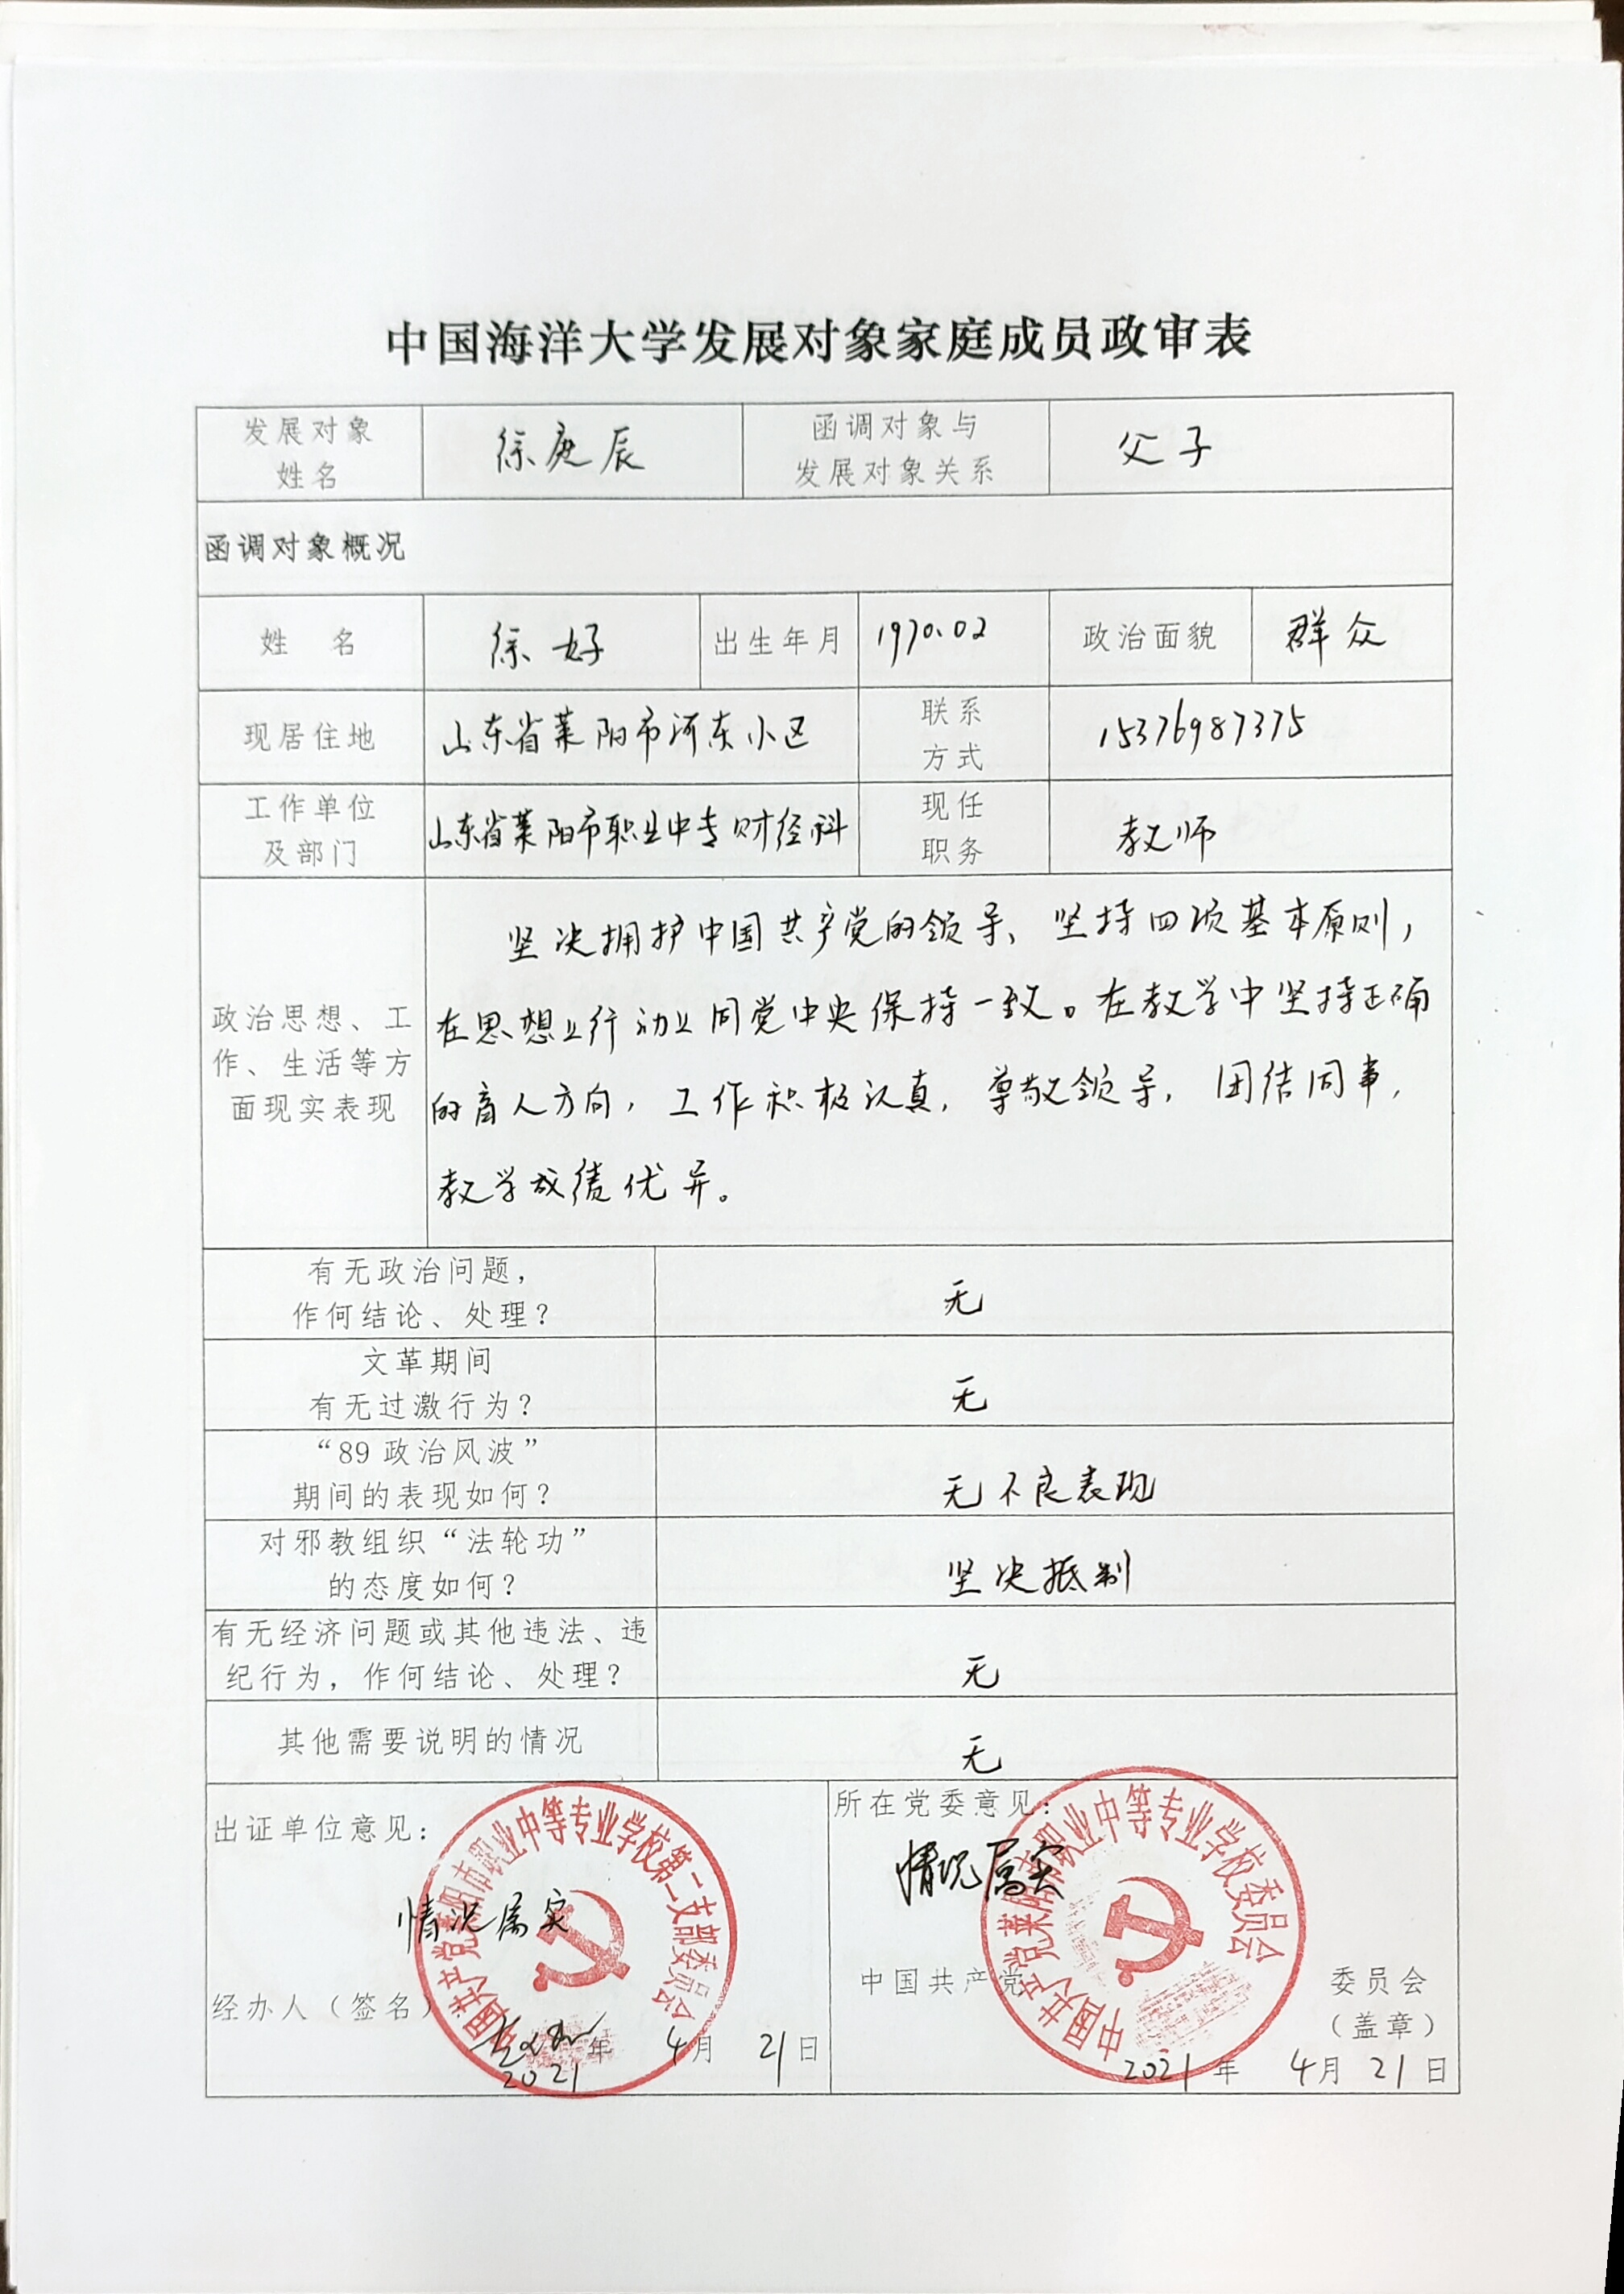 中国海洋大学发展对象家庭成员政审表
发展对象
姓名
徐庚辰
函调对象与
发展对象关系
父子
函调对象概况
姓 名
徐好
出生年月
1970.02
政治面貌
群众
现居住地
山东省莱阳市河东小区
联系
方式
15376987375
工作单位
及部门
山东省莱阳市职业中专财经科
现任
职务
教师
政治思想、工
作、生活等方
面现实表现
坚决拥护中国共产党的领导、坚持四项基本原则,
在思想上行动上同党中央保持一致。在教学中坚持正确
的育人方向,工作积极认真,尊敬领导,团结同事,
教学成绩优异。
有无政治问题,
作何结论、处理?
无
文革期间
有无过激行为?
无
“89政治风波”
期间的表现如何?
无不良表现
对邪教组织“法轮功”
的态度如何?
坚决抵制
有无经济问题或其他违法、违
纪行为,作何结论、处理?
无
其他需要说明的情况
无
出证单位意见:
情况属实
中国共产党莱阳市职业中等专业学校第二支部委员会
经办人(签名)
2021年 4月 21日
所在党委意见:
情况属实
中国共产党莱阳市职业中等专业学校委员会
中国共产党 委员会
(盖章)
2021年 4月 21日